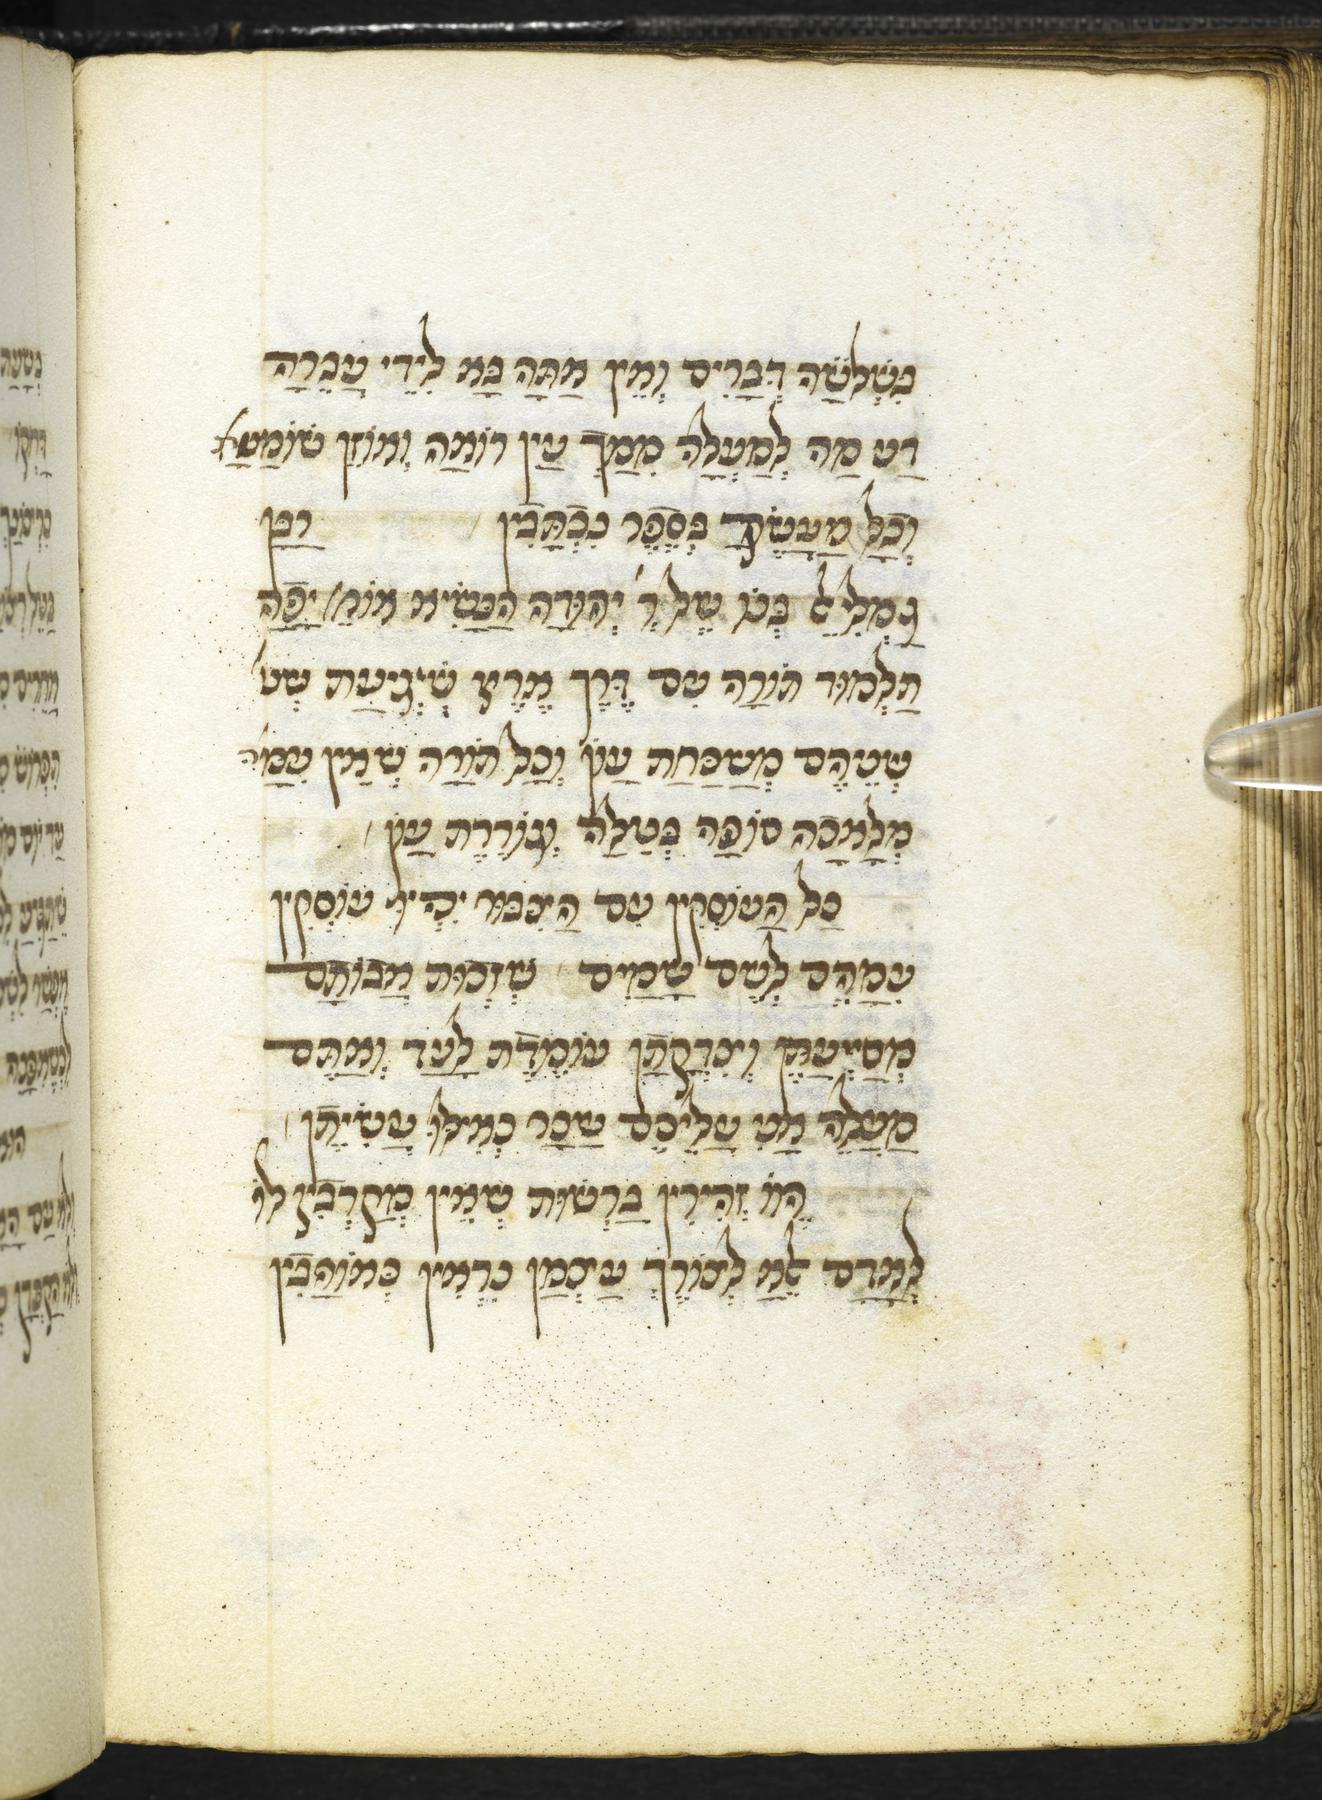 בִשְׁלֹשָׁה דְבָרִים וְאֵין אַתָּה בָא לִידֵי עֲבֵרָה
דַע מַה לְמַעְלָה מִמָךְ עַיִן רוֹאָה וְאוֹזֶן שׁוֹמַעַת
וְכָל מַעֲשֶׂךָ בְּסֵפֶר נִכְתָּבִין רַבָּן
גַמְלִיאֵל בְּנוֹ שֶׁל ר' יְהוּדָה הַנָּשִׂיא אוֹמֵ' יָפֶה
תַלְמוּד תוֹרָה עִם דֶּרֶךְ אֶרֶץ שֶׁיְגִיעַת שְׁנֵ'
שְׁנֵיהֶם מְשַׁכַּחַת עָוֹן וְכָל תּוֹרָה שֶׁאֵין עִמָּהּ
מְלָאכָה סוֹפָהּ בְּטֵלָה וְגוֹרֶרֶת עָוֹן
כָל הָעוֹסְקִין עִם הַצִבּוּר יִהְיוּ עוֹסְקִין
עִמָהֶם לְשֵׁם שָׁמַיִם שֶׁזְכוּת אֲבוֹתָם
מְסַיְיעַתָּן וְצִדְקָתָן עוֹמֶדֶת לָעַד וְאַתֶּם
מַעֲלֶה אֲנִי עֲלֵיכֶם שָׂכָר כְאִילוּ עֲשִׂיתֶן
הֱווֹ זְהִירִין בָרְשׁוּת שֶׁאֵין מְקָרְבִין לוֹ
לְאָדָם אֶלָא לְצוֹרֶךְ עַצְמָן נִרְאִין כְּאוֹהֲבִין